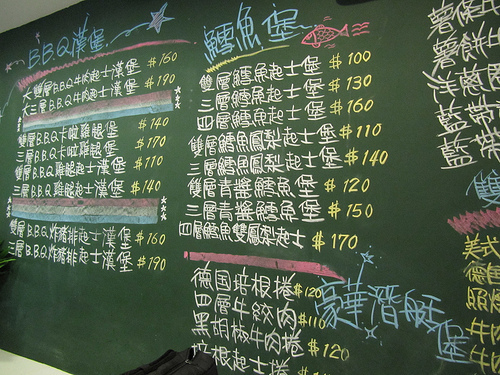 B.B.Q漢堡
大雙層B.B.Q牛肉起士漢堡 $160
大三層B.B.Q牛肉起士漢堡 $190
雙層B.B.Q卡啦雞腿堡 $140
三層B.B.Q卡啦雞腿堡 $170
雙層B.B.Q雞腿起士漢堡 $110
三層B.B.Q雞腿起士漢堡 $140
雙層B.B.Q炸豬排起士漢堡 $160
三層B.B.Q炸豬排起士漢堡 $190
鱈魚堡
雙層鱈魚起士堡 $100
三層鱈魚起士堡 $130
四層鱈魚起士堡 $160
雙層鱈魚鳳梨起士堡 $110
三層鱈魚鳳梨起士堡 $140
雙層青醬鱈魚堡 $120
三層青醬鱈魚堡 $150
四層鱈魚雙鳳梨起士 $170
德国培根捲 $120
四層牛絞肉 $110
黑胡椒牛肉捲 $120
培根起士捲
豪華潛艇堡
薯條
薯餅
洋蔥
藍帶
藍帶
雙
美式
德国
照
牛